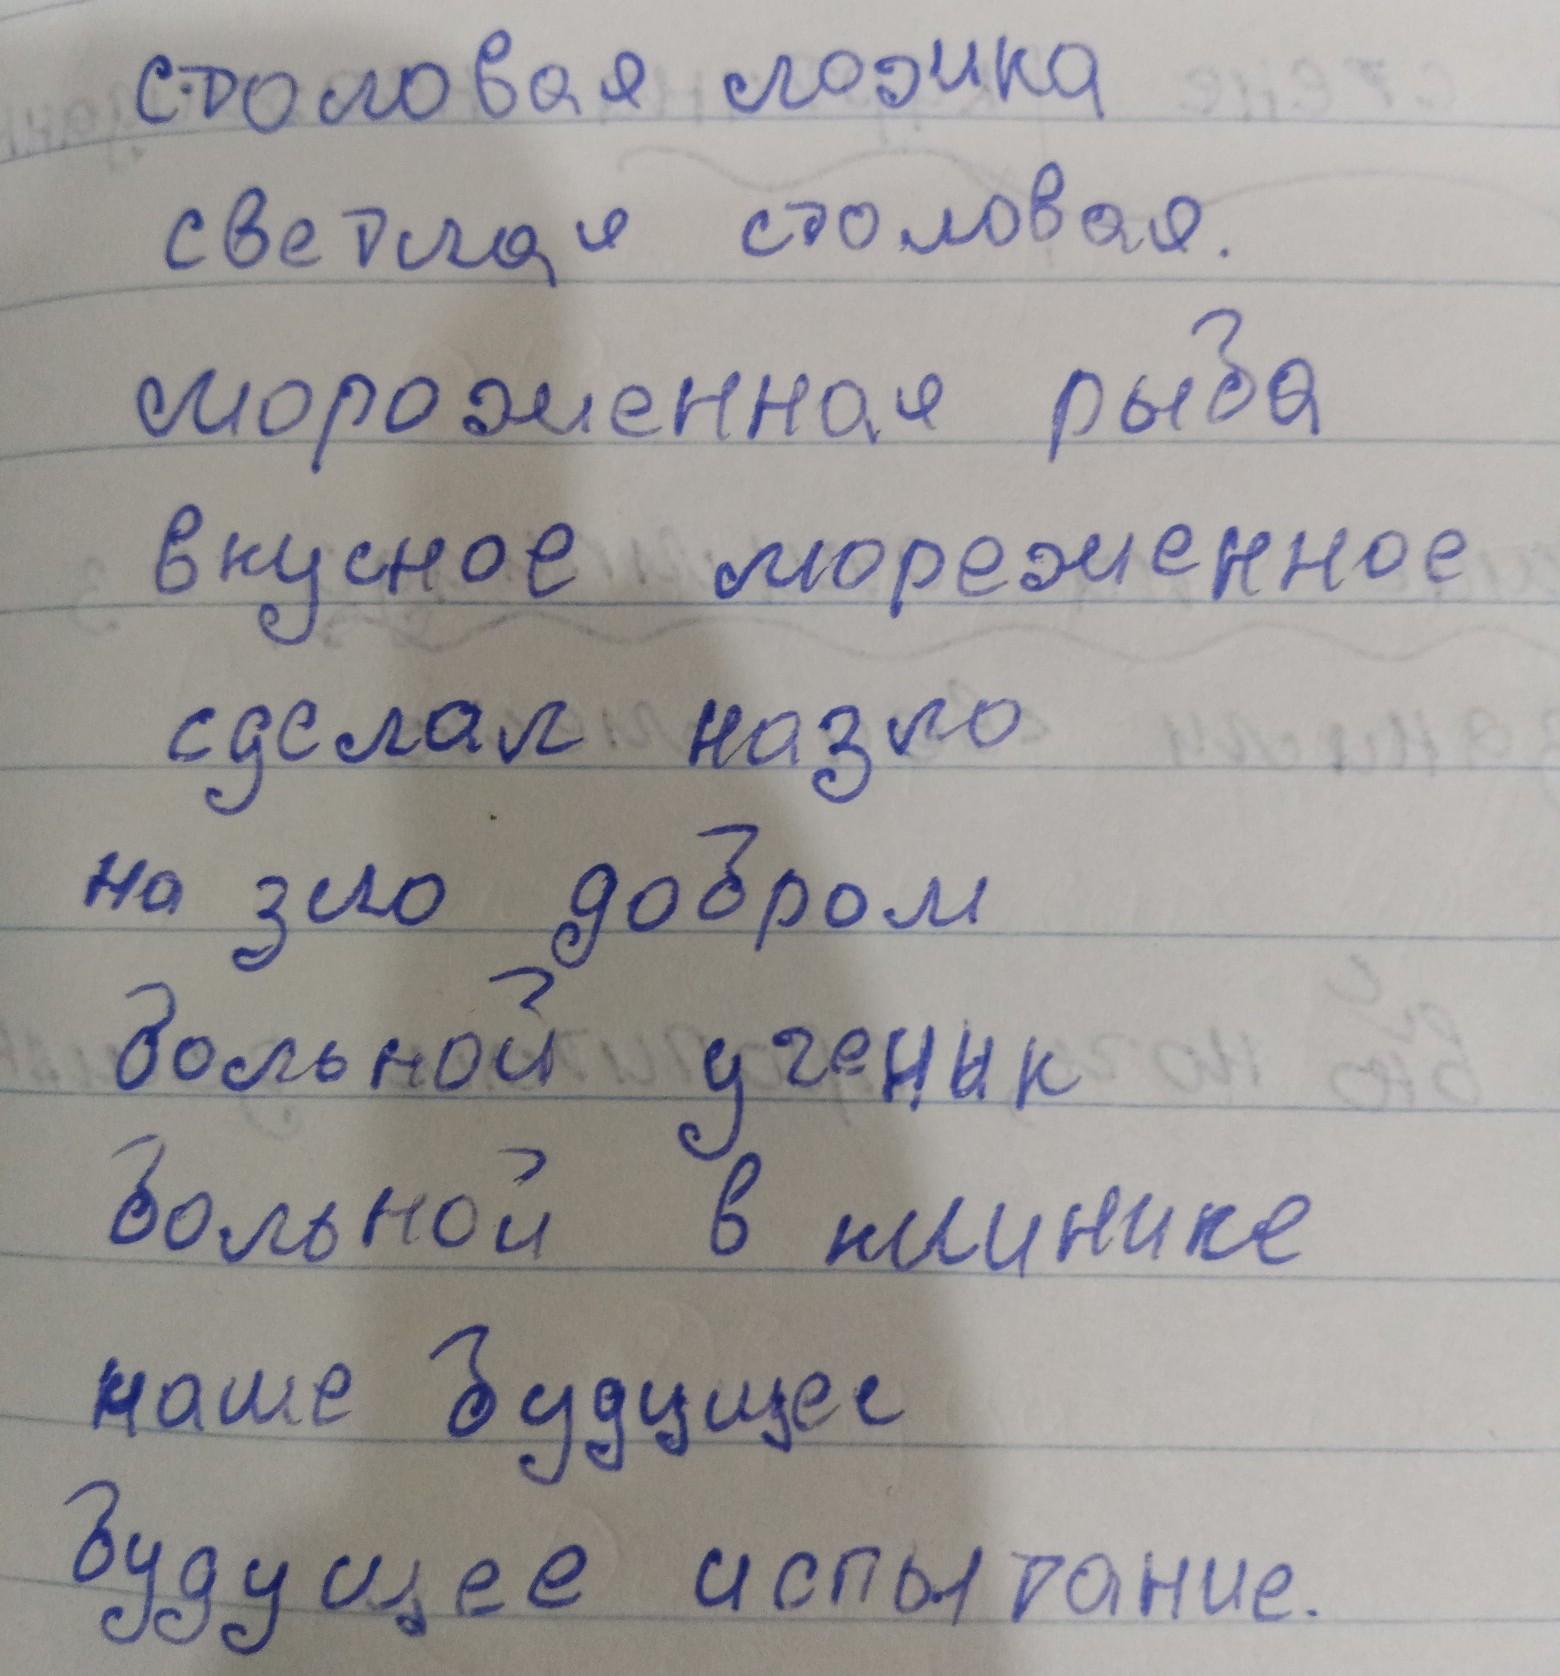 столовая ложика
светлая столовая.
мороженная рыба
вкусное мореженное
сделал назло
на зло добром
больной ученык
больной в клинике
наше будущее
будущее испытание.